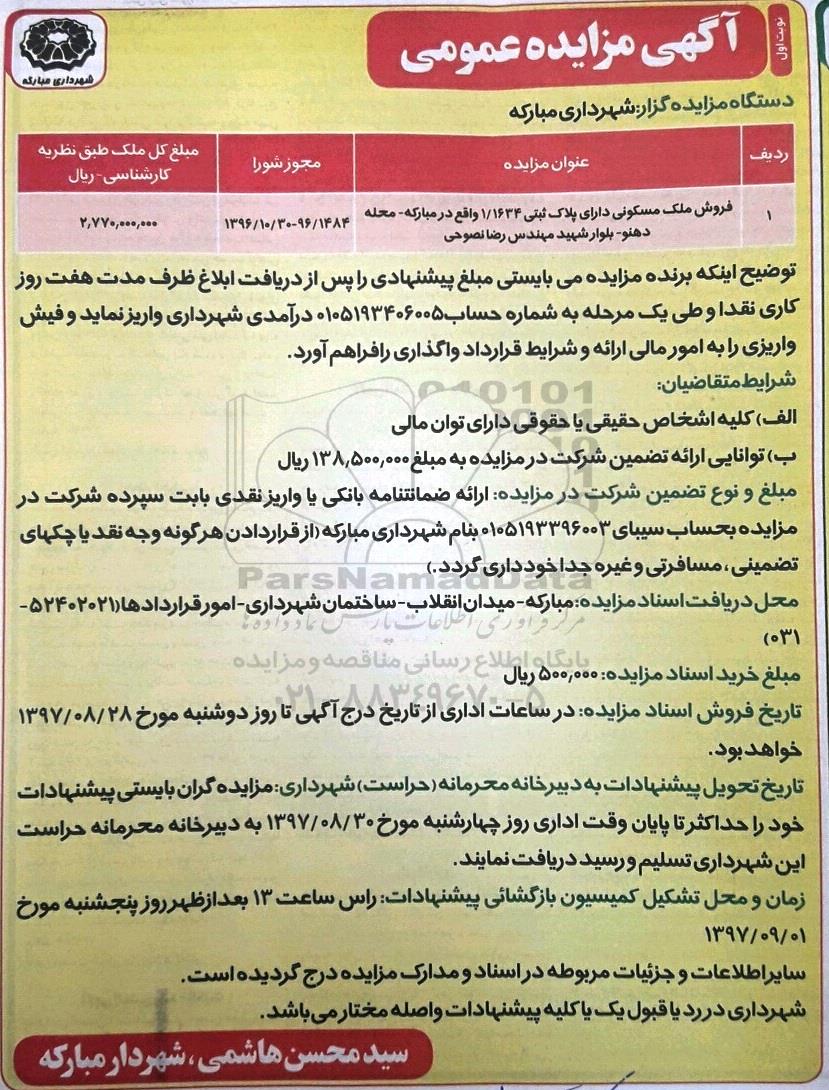 شهرداری مبارکه
نوبت اول
آگهی مزایده عمومی
دستگاه مزایده گزار: شهرداری مبارکه
ردیف
عنوان مزایده
مجوز شورا
مبلغ کل ملک طبق نظریه
کارشناسی - ریال
۱
فروش ملک مسکونی دارای پلاک ثبتی ۱/۱۶۳۴ واقع در مبارکه - محله
دهنو - بلوار شهید مهندس رضا نصوحی
۱۳۹۶/۱۰/۳۰-۹۶/۱۴۸۴
۲,۷۷۰,۰۰۰,۰۰۰
توضیح اینکه برنده مزایده می بایستی مبلغ پیشنهادی را پس از دریافت ابلاغ ظرف مدت هفت روز
کاری نقدا و طی یک مرحله به شماره حساب ۰۱۰۵۱۹۳۴۰۶۰۰۵ درآمدی شهرداری واریز نماید و فیش
واریزی را به امور مالی ارائه و شرایط قرارداد واگذاری را فراهم آورد.
شرایط متقاضیان:
الف) کلیه اشخاص حقیقی یا حقوقی دارای توان مالی
ب) توانایی ارائه تضمین شرکت در مزایده به مبلغ ۱۳۸,۵۰۰,۰۰۰ ریال
مبلغ و نوع تضمین شرکت در مزایده: ارائه ضمانتنامه بانکی یا واریز نقدی بابت سپرده شرکت در
مزایده بحساب سیبای ۰۱۰۵۱۹۳۳۹۶۰۰۳ بنام شهرداری مبارکه (از قراردادن هرگونه وجه نقد یا چکهای
تضمینی، مسافرتی و غیره جدا خودداری گردد.)
محل دریافت اسناد مزایده: مبارکه - میدان انقلاب - ساختمان شهرداری - امور قراردادها (۵۲۴۰۲۰۲۱-
۰۳۱)
مبلغ خرید اسناد مزایده: ۵۰۰,۰۰۰ ریال
تاریخ فروش اسناد مزایده: در ساعات اداری از تاریخ درج آگهی تا روز دوشنبه مورخ ۱۳۹۷/۰۸/۲۸
خواهد بود.
تاریخ تحویل پیشنهادات به دبیرخانه محرمانه (حراست) شهرداری: مزایده گران بایستی پیشنهادات
خود را حداکثر تا پایان وقت اداری روز چهارشنبه مورخ ۱۳۹۷/۰۸/۳۰ به دبیرخانه محرمانه حراست
این شهرداری تسلیم و رسید دریافت نمایند.
زمان و محل تشکیل کمیسیون بازگشائی پیشنهادات: راس ساعت ۱۳ بعدازظهر روز پنجشنبه مورخ
۱۳۹۷/۰۹/۰۱
سایر اطلاعات و جزئیات مربوطه در اسناد و مدارک مزایده درج گردیده است.
شهرداری در رد یا قبول یک یا کلیه پیشنهادات واصله مختار می باشد.
سید محسن هاشمی، شهردار مبارکه
ParsNamadData
مرکز فرآوری اطلاعات پارس نماد داده ها
پایگاه اطلاع رسانی مناقصه و مزایده
۰۲۱-۸۸۳۴۹۶۷۰-۵